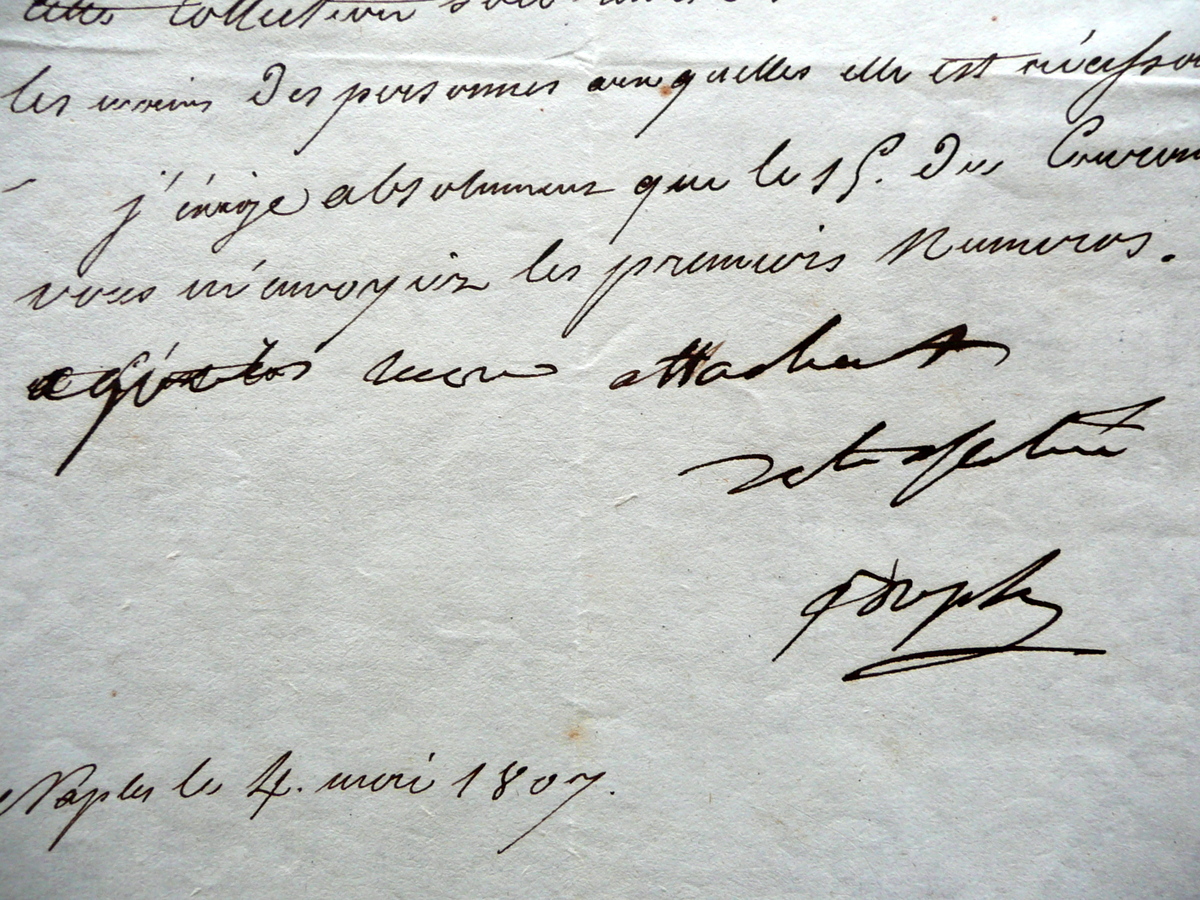 cette collection soit dans
les mains des personnes auxquelles elle est nécessa
j'éxige absolument que le 15. du Couran
vous m'envoyiez les premiers Numeros.
agréés mon attachement
Joseph
Naples le 4. mai 1807.